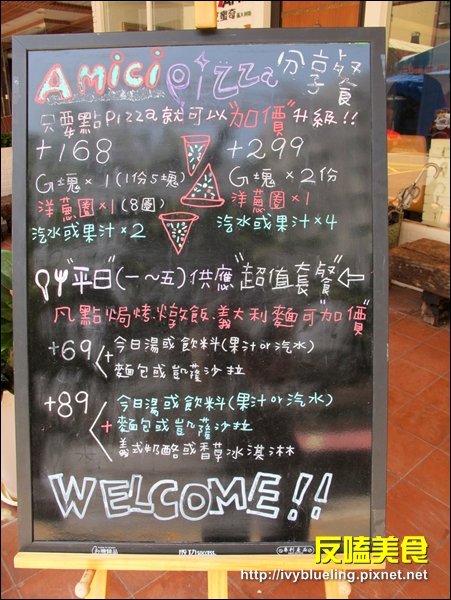 AMiCi pizza 分享餐
只要點pizza就可以"加價"升級!!
+168
G塊×1(1份5塊)
洋蔥圈×1(8圈)
汽水或果汁×2
+299
G塊×2份
洋蔥圈×1
汽水或果汁×4
"平日"(一～五)供應"超值套餐"
凡點焗烤.燉飯.義大利麵可"加價"
+69 今日湯或飲料(果汁or汽水)
+ 麵包或凱薩沙拉
+89 今日湯或飲料(果汁or汽水)
+ 麵包或凱薩沙拉
義式奶酪或香草冰淇淋
WELCOME!!
成功 success
反嗑美食
http://ivyblueling.pixnet.net/